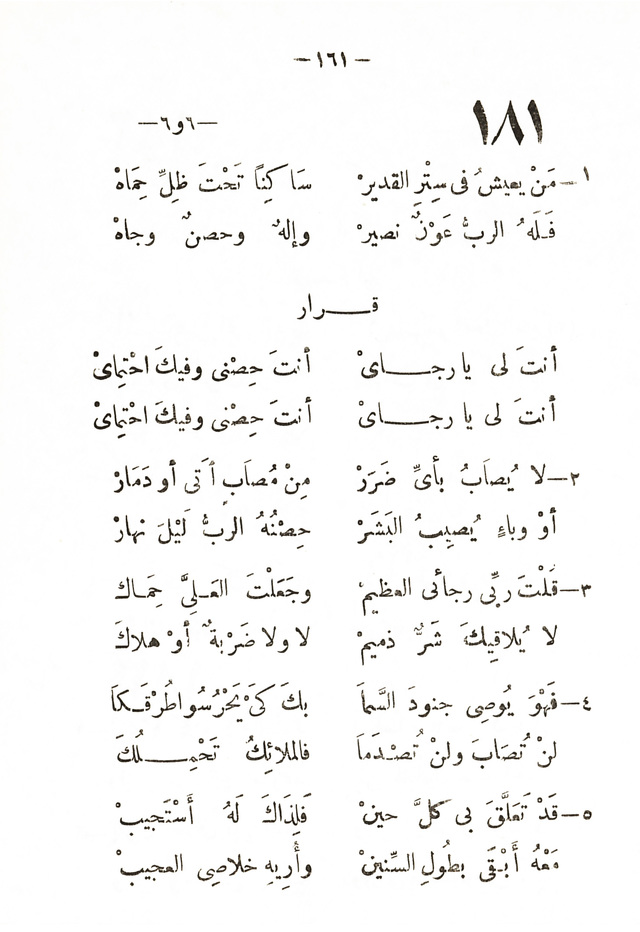 — ١٦١ —
١٨١ —٦و٦—
١— مَنْ يعيشُ فى سِتْرِ القديرْ سَاكِنًا تَحْتَ ظِلِّ حِمَاهْ
فَلَهُ الربُّ عَوْنٌ نصيرْ وإلهٌ وحصنٌ وجاهْ
قـــرار
أنتَ لى يا رجـــاىْ أنتَ حِصْنى وفيكَ احْتِمائْ
أنتَ لى يا رجـــاىْ أنتَ حِصْنى وفيكَ احْتِمائْ
٢— لا يُصَابُ بأىِّ ضَرَرْ مِنْ مُصَابٍ أَتَى أو دَمَارْ
أوْ وباءٍ يُصيِبُ البَشَرْ حِصْنُهُ الربُّ لَيْلَ نهارْ
٣— قُلْتَ ربِّى رجائى العظيمْ وجَعَلْتَ العَـلِىَّ حِمَـاكَ
لا يُلاقِيكَ شَرٌّ ذميمْ لا ولا ضَرْبةٌ أوْ هلاكَ
٤— فَهْوَ يُوصِى جنودَ السَّمَا بكَ كَىْ يَحْرُسُوا طُرْقَـكَا
لنْ تُصَابَ ولنْ تُصْـدَمَا فالملائِكُ تَحْمِــلُكَ
٥— قَدْ تَعَلَّقَ بى كلَّ حينْ فَلِذَاكَ لَهُ أَسْتَجيبْ
مَعْهُ أَبْـقَى بطُولِ السِّنينْ وأُرِيهِ خلاصِى العجيبْ